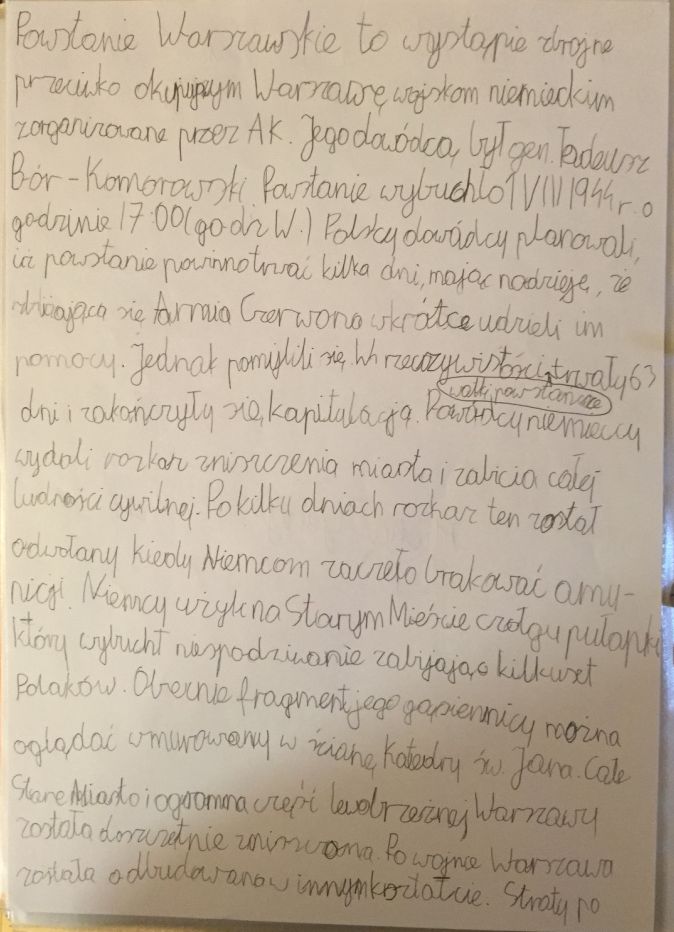 Powstanie Warszawskie to wystąpie zbrojne
przeciwko okupującym Warszawę wojskom niemieckim
zorganizowane przez AK. Jego dowódcą był gen. Tadeusz
Bór-Komorowski. Powstanie wybuchło 1 VIII 1944 r. o
godzinie 17:00 (godz W.) Polscy dowódcy planowali,
iż powstanie powinno trwać kilka dni, mając nadzieję, że
zbliżająca się Armia Czerwona wkrótce udzieli im
pomocy. Jednak pomylili się. W rzeczywistości trwały 63
walki powstańcze
dni i zakończyły się kapitulacją. Dowódcy niemieccy
wydali rozkaz zniszczenia miasta i zabicia całej
ludności cywilnej. Po kilku dniach rozkaz ten został
odwołany kiedy Niemcom zaczęło brakować amu-
nicji. Niemcy użyli na Starym Mieście czołgu pułapki
który wybuchł niespodziwanie zabijając kilkuset
Polaków. Obecnie fragment jego gąsiennicy można
oglądać wmurowany w ścianę Katedry św. Jana. Całe
Stare Miasto i ogromna część lewobrzeżnej Warszawy
została doszczętnie zniszczona. Po wojnie Warszawa
została odbudowana w innym kształcie. Straty po